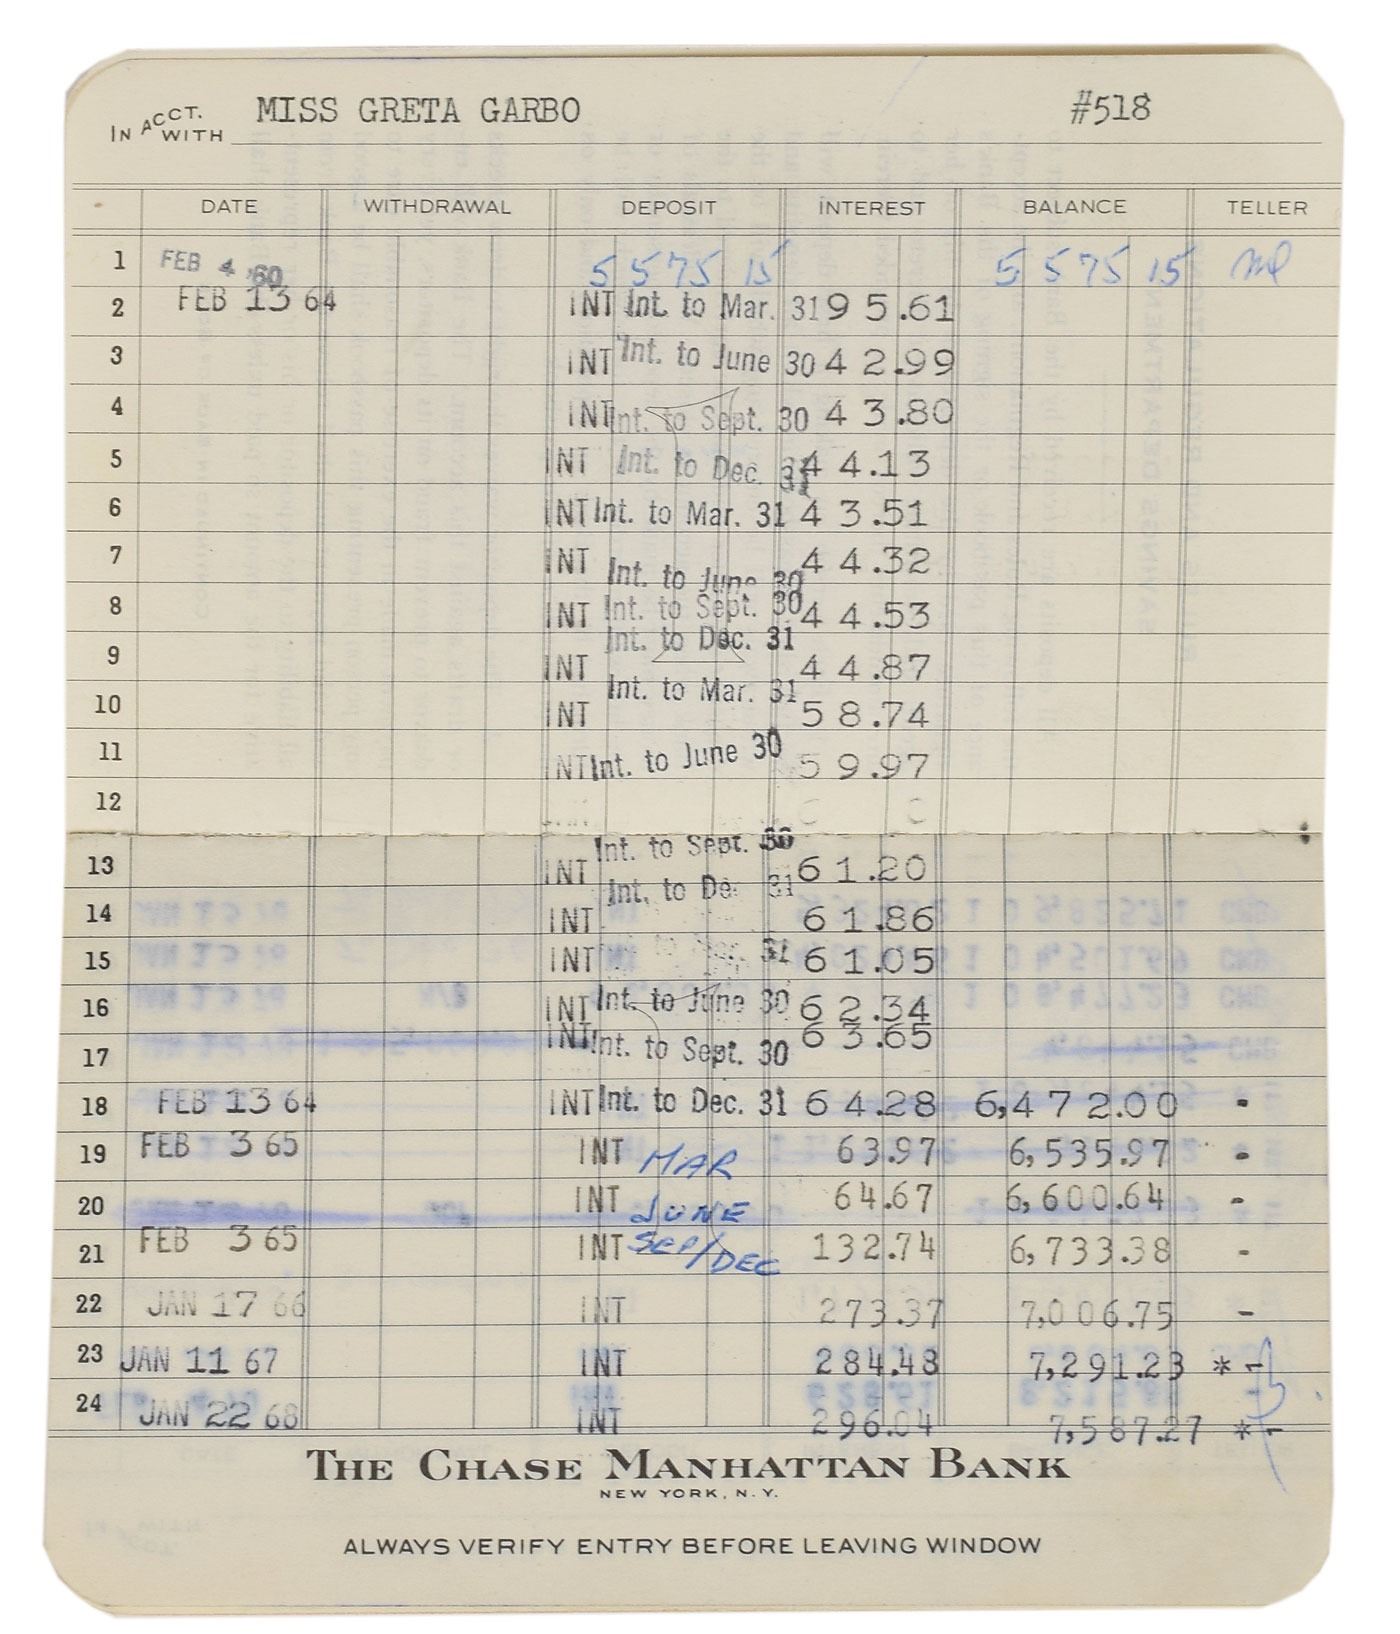 IN ACCT. WITH MISS GRETA GARBO #518
DATE WITHDRAWAL DEPOSIT INTEREST BALANCE TELLER
1 FEB 4 '60 5 5 75 15 5 5 75 15
2 FEB 13 64 INT Int. to Mar. 31 95.61
3 INT Int. to June 30 42.99
4 INT Int. to Sept. 30 43.80
5 INT Int. to Dec. 31 44.13
6 INT Int. to Mar. 31 43.51
7 INT Int. to June 30 44.32
8 INT Int. to Sept. 30 44.53
9 INT Int. to Dec. 31 44.87
10 INT Int. to Mar. 31 58.74
11 INT Int. to June 30 59.97
12
13 INT Int. to Sept. 30 61.20
14 INT Int. to De 31 61.86
15 INT 31 61.05
16 INT Int. to June 30 62.34
17 INT Int. to Sept. 30 63.65
18 FEB 13 64 INT Int. to Dec. 31 64.28 6,472.00 -
19 FEB 3 65 INT MAR 63.97 6,535.97 -
20 INT JUNE 64.67 6,600.64 -
21 FEB 3 65 INT SEP/DEC 132.74 6,733.38 -
22 JAN 17 66 INT 273.37 7,006.75 -
23 JAN 11 67 INT 284.48 7,291.23 * -
24 JAN 22 68 INT 296.04 7,587.27 * -
THE CHASE MANHATTAN BANK
NEW YORK, N.Y.
ALWAYS VERIFY ENTRY BEFORE LEAVING WINDOW